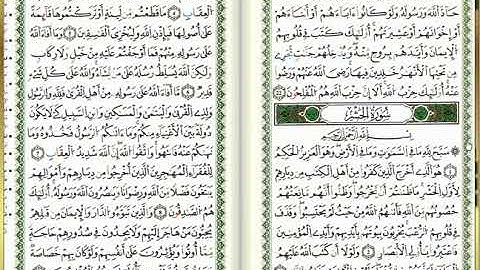 حَادَّ ٱللَّهَ وَرَسُولَهُۥ وَلَوْ كَانُوٓا۟ ءَابَآءَهُمْ أَوْ أَبْنَآءَهُمْ
أَوْ إِخْوَٰنَهُمْ أَوْ عَشِيرَتَهُمْ أُو۟لَٰٓئِكَ كَتَبَ فِى قُلُوبِهِمُ
ٱلْإِيمَٰنَ وَأَيَّدَهُم بِرُوحٍ مِّنْهُ وَيُدْخِلُهُمْ جَنَّٰتٍ تَجْرِى
مِن تَحْتِهَا ٱلْأَنْهَٰرُ خَٰلِدِينَ فِيهَا رَضِىَ ٱللَّهُ عَنْهُمْ وَرَضُوا۟
عَنْهُ أُو۟لَٰٓئِكَ حِزْبُ ٱللَّهِ أَلَآ إِنَّ حِزْبَ ٱللَّهِ هُمُ ٱلْمُفْلِحُونَ ٢٢
سُورَةُ الحَشْرِ
بِسْمِ ٱللَّهِ ٱلرَّحْمَٰنِ ٱلرَّحِيمِ
سَبَّحَ لِلَّهِ مَا فِى ٱلسَّمَٰوَٰتِ وَمَا فِى ٱلْأَرْضِ وَهُوَ ٱلْعَزِيزُ ٱلْحَكِيمُ
١ هُوَ ٱلَّذِىٓ أَخْرَجَ ٱلَّذِينَ كَفَرُوا۟ مِنْ أَهْلِ ٱلْكِتَٰبِ مِن دِيَٰرِهِمْ
لِأَوَّلِ ٱلْحَشْرِ مَا ظَنَنتُمْ أَن يَخْرُجُوا۟ وَظَنُّوٓا۟ أَنَّهُم مَّانِعَتُهُمْ
حُصُونُهُم مِّنَ ٱللَّهِ فَأَتَىٰهُمُ ٱللَّهُ مِنْ حَيْثُ لَمْ يَحْتَسِبُوا۟ وَقَذَفَ
فِى قُلُوبِهِمُ ٱلرُّعْبَ يُخْرِبُونَ بُيُوتَهُم بِأَيْدِيهِمْ وَأَيْدِى ٱلْمُؤْمِنِينَ
فَٱعْتَبِرُوا۟ يَٰٓأُو۟لِى ٱلْأَبْصَٰرِ ٢ وَلَوْلَآ أَن كَتَبَ ٱللَّهُ عَلَيْهِمُ
ٱلْعِقَابِ ٤ مَا قَطَعْتُم مِّن لِّينَةٍ أَوْ تَرَكْتُمُوهَا قَآئِمَةً
عَلَىٰٓ أُصُولِهَا فَبِإِذْنِ ٱللَّهِ وَلِيُخْزِىَ ٱلْفَٰسِقِينَ ٥ وَمَآ أَفَآءَ ٱللَّهُ
عَلَىٰ رَسُولِهِۦ مِنْهُمْ فَمَآ أَوْجَفْتُمْ عَلَيْهِ مِنْ خَيْلٍ وَلَا رِكَابٍ
وَلَٰكِنَّ ٱللَّهَ يُسَلِّطُ رُسُلَهُۥ عَلَىٰ مَن يَشَآءُ وَٱللَّهُ عَلَىٰ كُلِّ شَىْءٍ
قَدِيرٌ ٦ مَّآ أَفَآءَ ٱللَّهُ عَلَىٰ رَسُولِهِۦ مِنْ أَهْلِ ٱلْقُرَىٰ فَلِلَّهِ وَلِلرَّسُولِ
وَلِذِى ٱلْقُرْبَىٰ وَٱلْيَتَٰمَىٰ وَٱلْمَسَٰكِينِ وَٱبْنِ ٱلسَّبِيلِ كَىْ لَا يَكُونَ
دُولَةًۢ بَيْنَ ٱلْأَغْنِيَآءِ مِنكُمْ وَمَآ ءَاتَىٰكُمُ ٱلرَّسُولُ فَخُذُوهُ وَمَا
نَهَىٰكُمْ عَنْهُ فَٱنتَهُوا۟ وَٱتَّقُوا۟ ٱللَّهَ إِنَّ ٱللَّهَ شَدِيدُ ٱلْعِقَابِ ٧
لِلْفُقَرَآءِ ٱلْمُهَٰجِرِينَ ٱلَّذِينَ أُخْرِجُوا۟ مِن دِيَٰرِهِمْ وَأَمْوَٰلِهِمْ
يَبْتَغُونَ فَضْلًا مِّنَ ٱللَّهِ وَرِضْوَٰنًا وَيَنصُرُونَ ٱللَّهَ وَرَسُولَهُۥٓ أُو۟لَٰٓئِكَ
هُمُ ٱلصَّٰدِقُونَ ٨ وَٱلَّذِينَ تَبَوَّءُو ٱلدَّارَ وَٱلْإِيمَٰنَ مِن قَبْلِهِمْ
يُحِبُّونَ مَنْ هَاجَرَ إِلَيْهِمْ وَلَا يَجِدُونَ فِى صُدُورِهِمْ حَاجَةً
مِّمَّآ أُوتُوا۟ وَيُؤْثِرُونَ عَلَىٰٓ أَنفُسِهِمْ وَلَوْ كَانَ بِهِمْ خَصَاصَةٌ